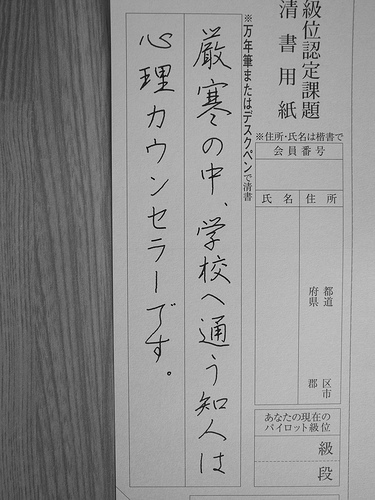 級位認定課題
清書用紙
※住所・氏名は楷書で
会員番号
住所
氏名
都道
府県
区
市
郡
あなたの現在の
パイロット級位
級
段
※万年筆またはデスクペンで清書
厳寒の中、学校へ通う知人は
心理カウンセラーです。